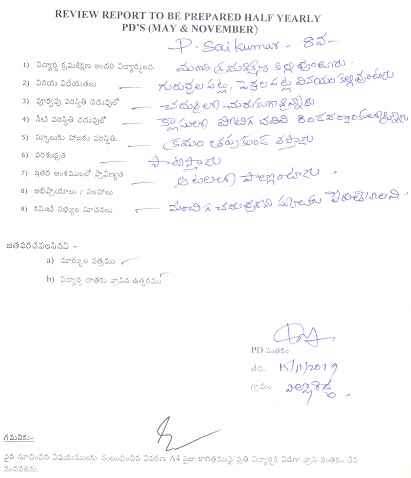 REVIEW REPORT TO BE PREPARED HALF YEARLY
PD'S (MAY & NOVEMBER)
P. Saikumar - 8వ
1) విద్యార్థి క్రమశిక్షణ అందరి విద్యార్థులది. మంచి క్రమశిక్షణ కల్గివుంటాడు.
2) వినయ విధేయతలు — గురువుల పట్ల, పెద్దల పట్ల వినయం కల్గివుంటాడు
3) పూర్వపు పరిస్థితి చదువులో — చదువులో చురుకుగా
4) నేటి పరిస్థితి చదువులో — క్లాసులో
5) స్కూలుకు హాజరు పరిస్థితి. — క్రమం తప్పకుండ వస్తాడు
6) పరిశుభ్రత — పాటిస్తాడు
7) ఇతర అంశములలో ప్రావీణ్యత — ఆటలలో పాల్గొంటాడు
8) అభిప్రాయాలు / సలహాలు
9) కమిటీ సభ్యుల సూచనలు — మంచిగ చదువుకొని స్కూలుకు పేరుతేవాలని.
జతపరచవలసినవి -
a) మార్కుల పత్రము
b) విద్యార్థి దాతకు వ్రాసిన ఉత్తరము
PD సంతకం
తేది. 15/11/2019
గ్రామం
గమనిక:-
పైన సూచించిన విషయములకు సంబంధించిన వివరణ A4 సైజు కాగితముపై ప్రతి విద్యార్థికి విడిగా వ్రాసి సంతకం చేసి
పంపవలెను.